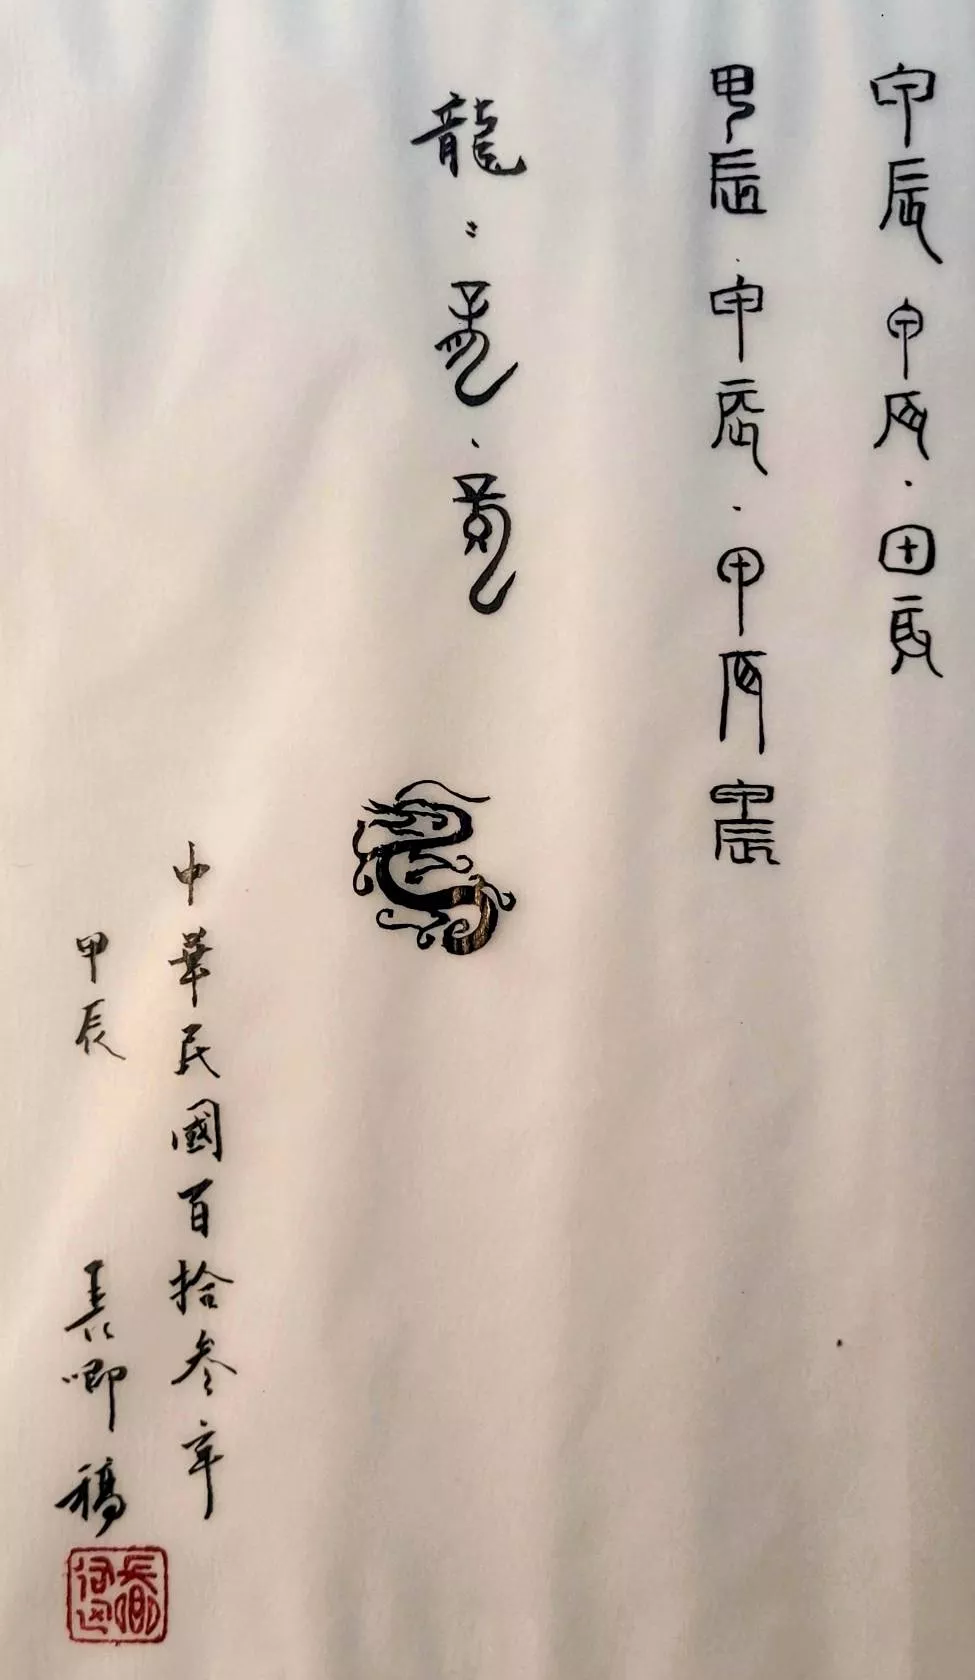 甲辰 甲辰·甲辰
甲辰·甲辰·甲辰 甲辰
龍:龍、龍
中華民國百拾叁年
甲辰 唧稿